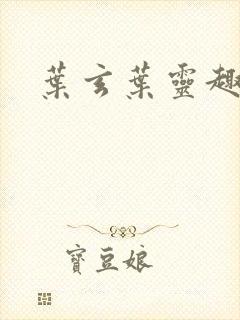 葉玄葉靈趣
寶豆娘